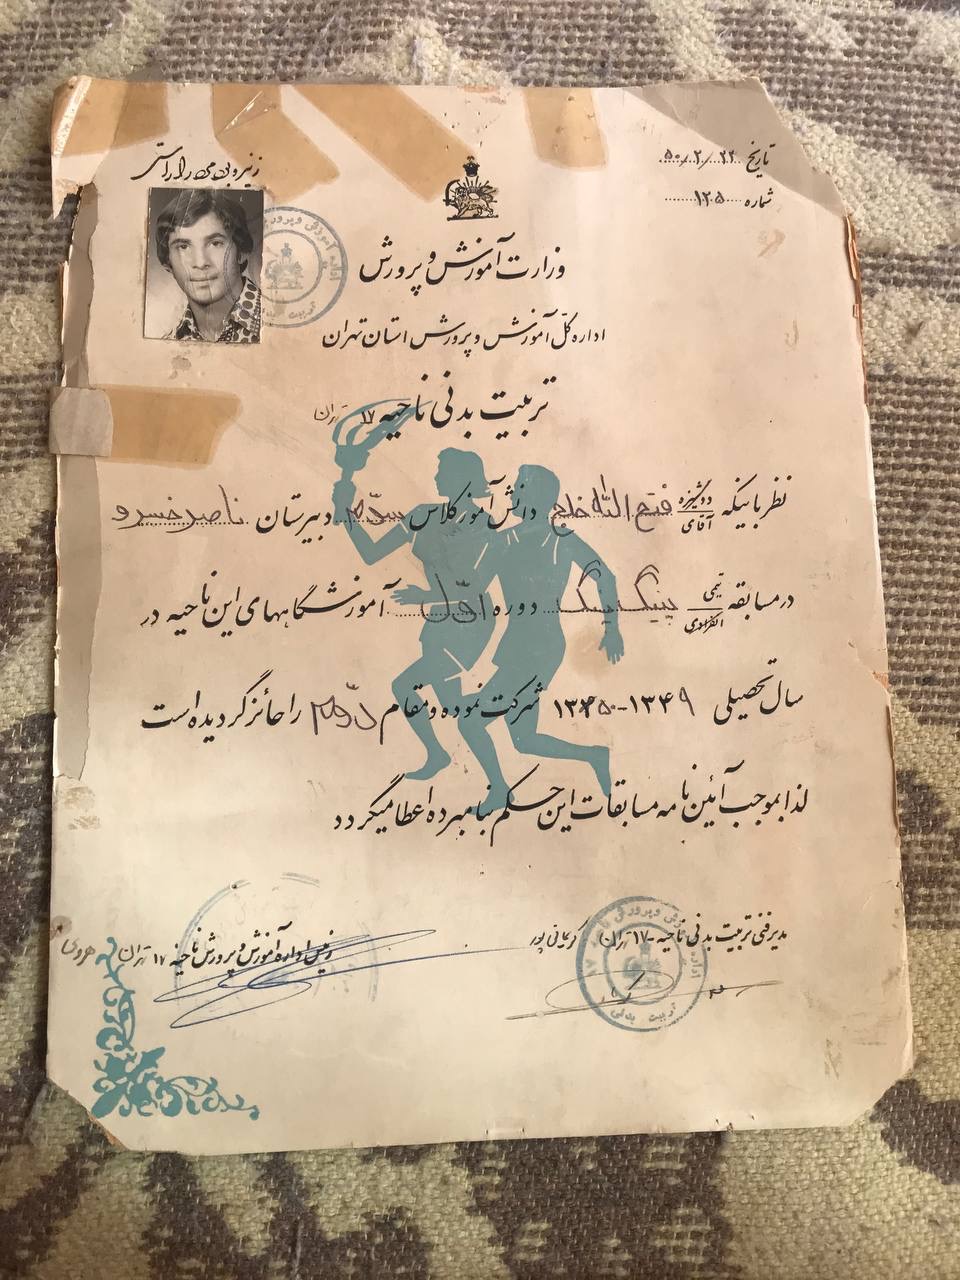 تاریخ ۵۰/۲/۲۲
شماره ۱۲۵
ز نیرو بود مرد را راستی
وزارت آموزش و پرورش
اداره کل آموزش و پرورش استان تهران
تربیت بدنی ناحیه ۱۷ تهران
نظر باینکه دوشیزه آقای فتح الله خلج دانش آموز کلاس سوّم دبیرستان ناصر خسرو
در مسابقه تیمی انفرادی پینگ پنگ دوره اوّل آموزشگاههای این ناحیه در
سال تحصیلی ۱۳۴۹-۱۳۵۰ شرکت نموده و مقام دوّم را حائز گردیده است
لذا بموجب آئین نامه مسابقات این حکم بنامبرده اعطا میگردد
مدیر فنی تربیت بدنی ناحیه ۱۷ تهران کریمانی پور
رئیس اداره آموزش و پرورش ناحیه ۱۷ تهران هروی
تربیت بدنی